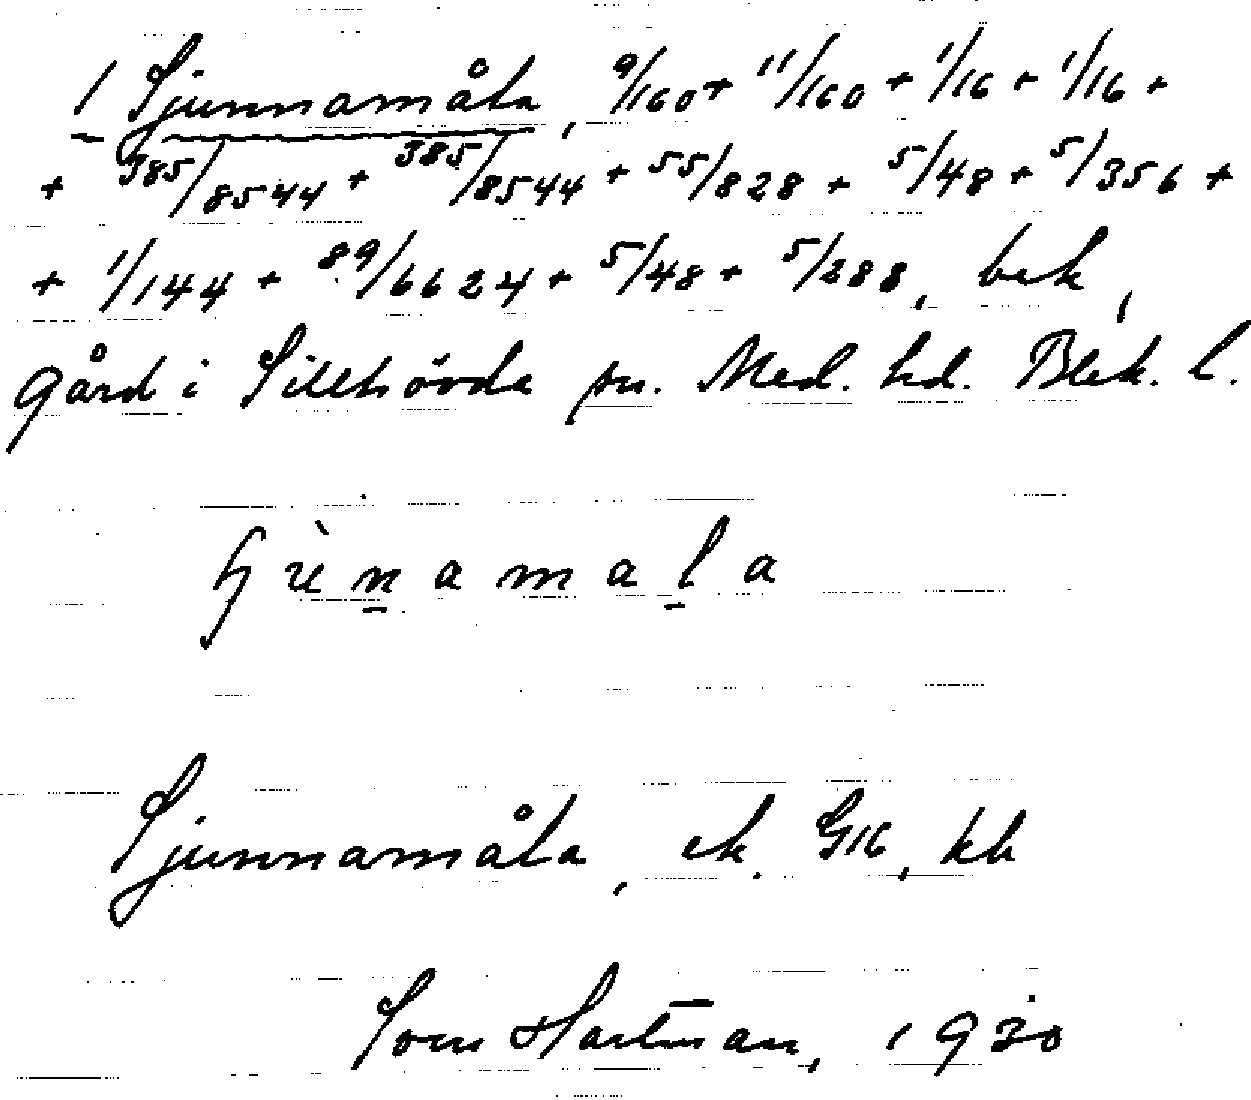 1 Sjunnamåla, 9/160 + 11/160 + 1/16 + 1/16 +
+ 385/8544 + 385/8544 + 55/828 + 5/48 + 5/356 +
+ 1/144 + 89/6624 + 5/48 + 5/288, bek,
gård i Sillhövda sn. Med. hd. Blek. l.
ɧùnamala
Sjunnamåla, ek. G16, kb
Sven Hartman, 1930